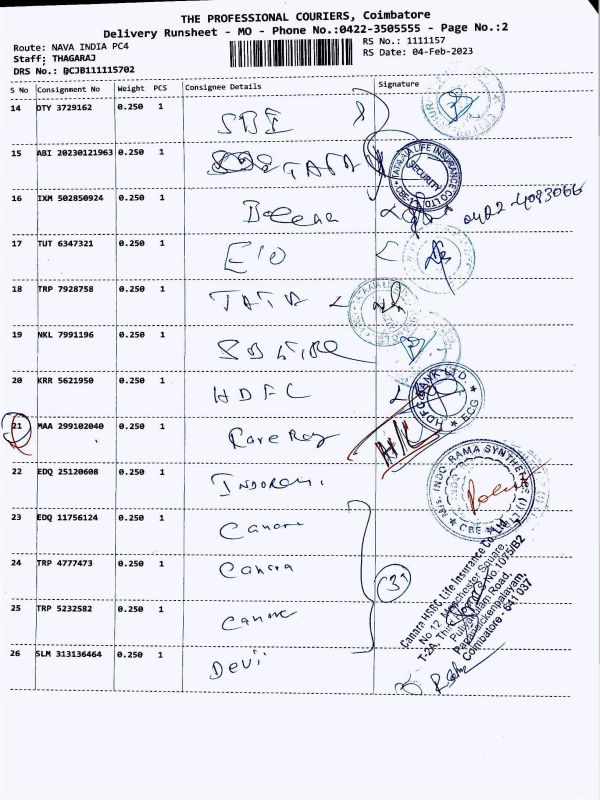 THE PROFESSIONAL COURIERS, Coimbatore
Delivery Runsheet - MO - Phone No.:0422-3505555 - Page No.:2
Route: NAVA INDIA PC4
Staff: THAGARAJ
DRS No.: BCJB111115702
RS No.: 1111157
RS Date: 04-Feb-2023
S No Consignment No Weight PCS Consignee Details Signature
14 DTY 3729162 0.250 1 SBI
15 ABI 20230121963 0.250 1 TATA
TATA AIA LIFE INSURANCE CO LTD
SECURITY
16 IXM 502850924 0.250 1 0422-4093066
17 TUT 6347321 0.250 1
18 TRP 7928758 0.250 1 TATA
19 NKL 7991196 0.250 1 SB Life
20 KRR 5621950 0.250 1 HDFC
HDFC BANK LTD.
ECG
21 MAA 299102040 0.250 1
22 EDQ 25120608 0.250 1
M/s. INDO RAMA SYNTHETICS (I) Ltd.
CBE
23 EDQ 11756124 0.250 1 Canara
24 TRP 4777473 0.250 1 Canara
25 TRP 5232582 0.250 1 Canara
(3)
Canara HSBC Life Insurance Co. Ltd.
No 12, Manchester Square,
Puliyakulam Road,
Pappanaickenpalayam,
Coimbatore - 641 037
26 SLM 313136464 0.250 1 Devi